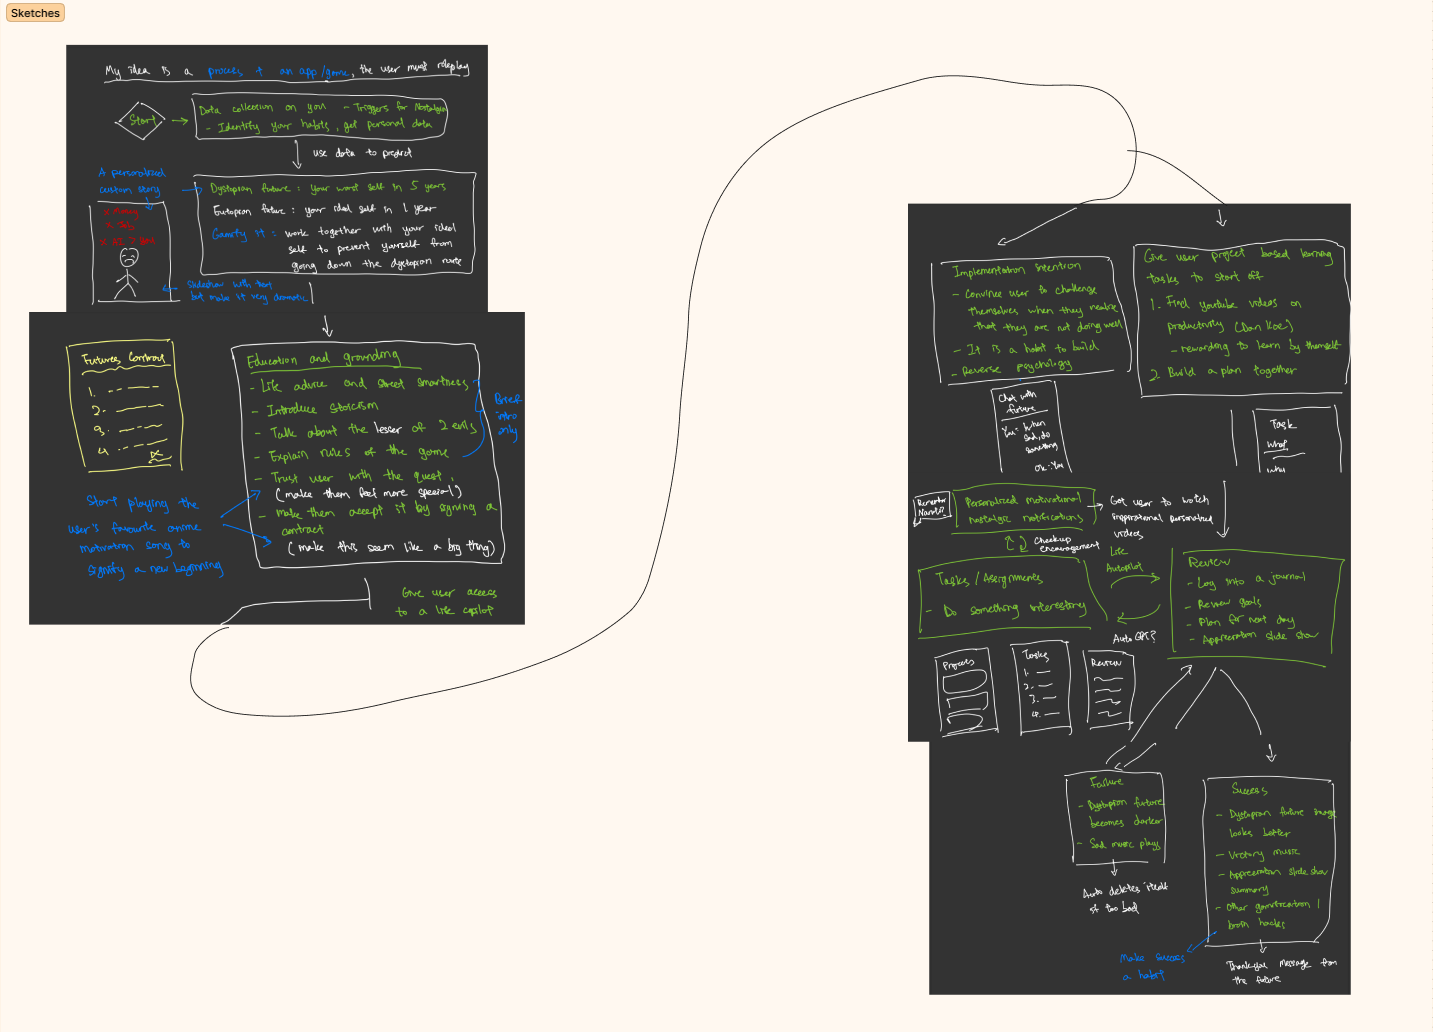 Sketches
My idea is a process + an app/game, the user must roleplay
Start
Data collection on you - Triggers for Nostalgia
- Identify your habits, get personal data
use data to predict
A personalized
custom story
x Money
Dystopian future : your worst self in 5 years
Eutopian future : your ideal self in 1 year
Gamify it : work together with your ideal
self to prevent yourself from
going down the dystopian route
slideshow with text
but make it very dramatic
Futures Contract
1.
2.
3.
4.
x
Education and grounding
- Life advice and street smartness
- Introduce stoicism
- Talk about the lesser of 2 evils
- Explain rules of the game
- Trust user with the quest,
(make them feel more special)
- make them accept it by signing a
contract
(make this seem like a big thing)
Brief
intro
only
Start playing the
user's favourite anime
motivation song to
signify a new beginning
Give user access
to a life copilot
Implementation intention
- Convince user to challenge
themselves when they realise
that they are not doing well
- It is a habit to build
- Reverse psychology
Give user project based learning
tasks to start off
1. Find youtube videos on
productivity (Dan Koe)
- rewarding to learn by themself
2. Build a plan together
Chat with
future
You: when
sad, do
something
Ok: You
Task
what
why
Remember
Naruto?
Personalized motivational
nostalgic notifications
Get user to watch
inspirational personalized
videos
Checkup
encouragement
Life
Autopilot
Tasks / Assignments
- Do something interesting
Auto GPT?
Review
- Log into a journal
- Review goals
- Plan for next day
- Appreciation slide show
Process
Tasks
1.
2.
3.
4.
Review
Failure
- Dystopian future
becomes darker
- Sad music plays
Auto deletes itself
if too bad
Success
- Dystopian future image
looks better
- Victory music
- Appreciation slide show
summary
- Other gamification /
brain hacks
Make success
a habit
Thankyou message from
the future